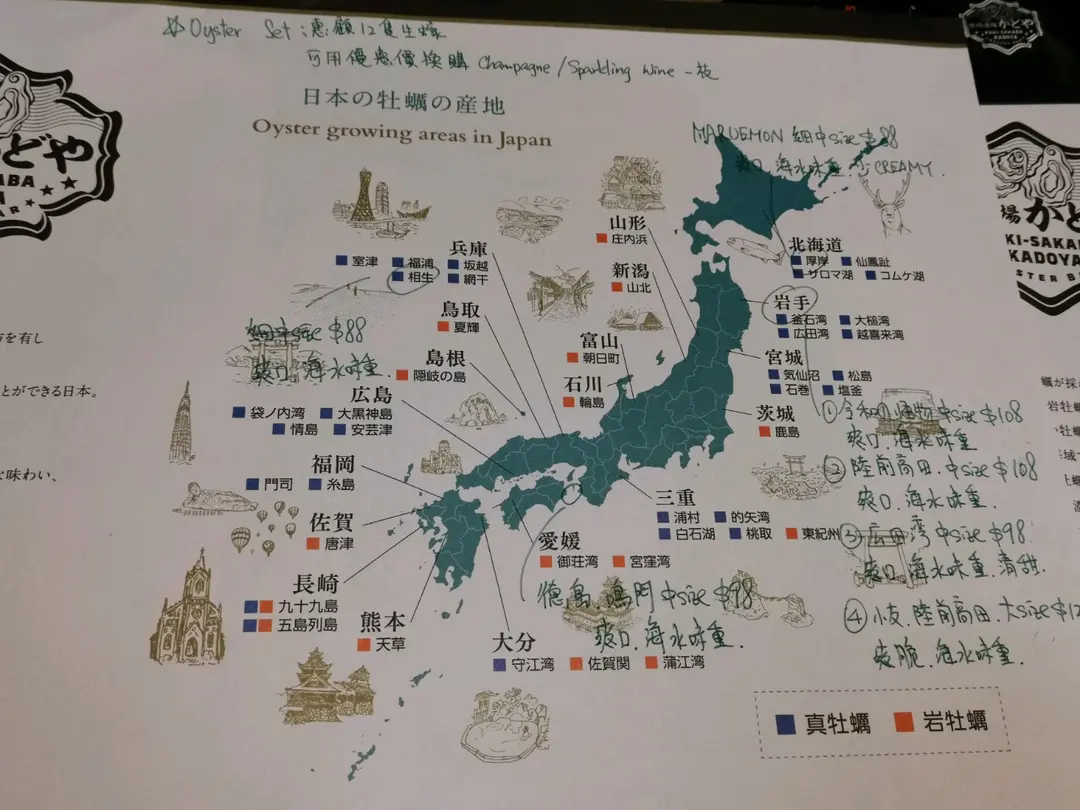 Oyster Set：惠顧12隻生蠔
可用優惠價換購 Champagne/Sparkling Wine 一枝
かどや
KI-SAKABA
KADOYA
日本の牡蠣の産地
Oyster growing areas in Japan
MARUEMON 細中size $88
爽口.海水味重.少CREAMY.
どや
ABA
場 かど
KI-SAKA
KADOYA
STER B
兵庫
室津 福浦 坂越
相生 網干
山形
庄内浜
新潟
山北
北海道
厚岸 仙鳳趾
サロマ湖 コムケ湖
鳥取
夏輝
岩手
釜石湾 大槌湾
広田湾 越喜来湾
細中size $88
爽口.海水味重.
島根
隠岐の島
富山
朝日町
石川
輪島
宮城
気仙沼 松島
石巻 塩釜
広島
袋ノ内湾 大黒神島
情島 安芸津
茨城
鹿島
方を有し
とができる日本。
な味わい、
蠣が採
岩牡蠣
① 令和の怪物 中size $108
爽口.海水味重
② 陸前高田.中size $108
爽口.海水味重.
③ 広田湾 中size $98
爽口.海水味重.清甜.
④ 小友.陸前高田.大size
爽脆.海水味重.
福岡
門司 糸島
佐賀
唐津
三重
浦村 的矢湾
白石湖 桃取 東紀州
愛媛
御荘湾 宮窪湾
徳島 鳴門 中size $98
爽口.海水味重.
長崎
九十九島
五島列島
熊本
天草
大分
守江湾 佐賀関 蒲江湾
真牡蠣 岩牡蠣